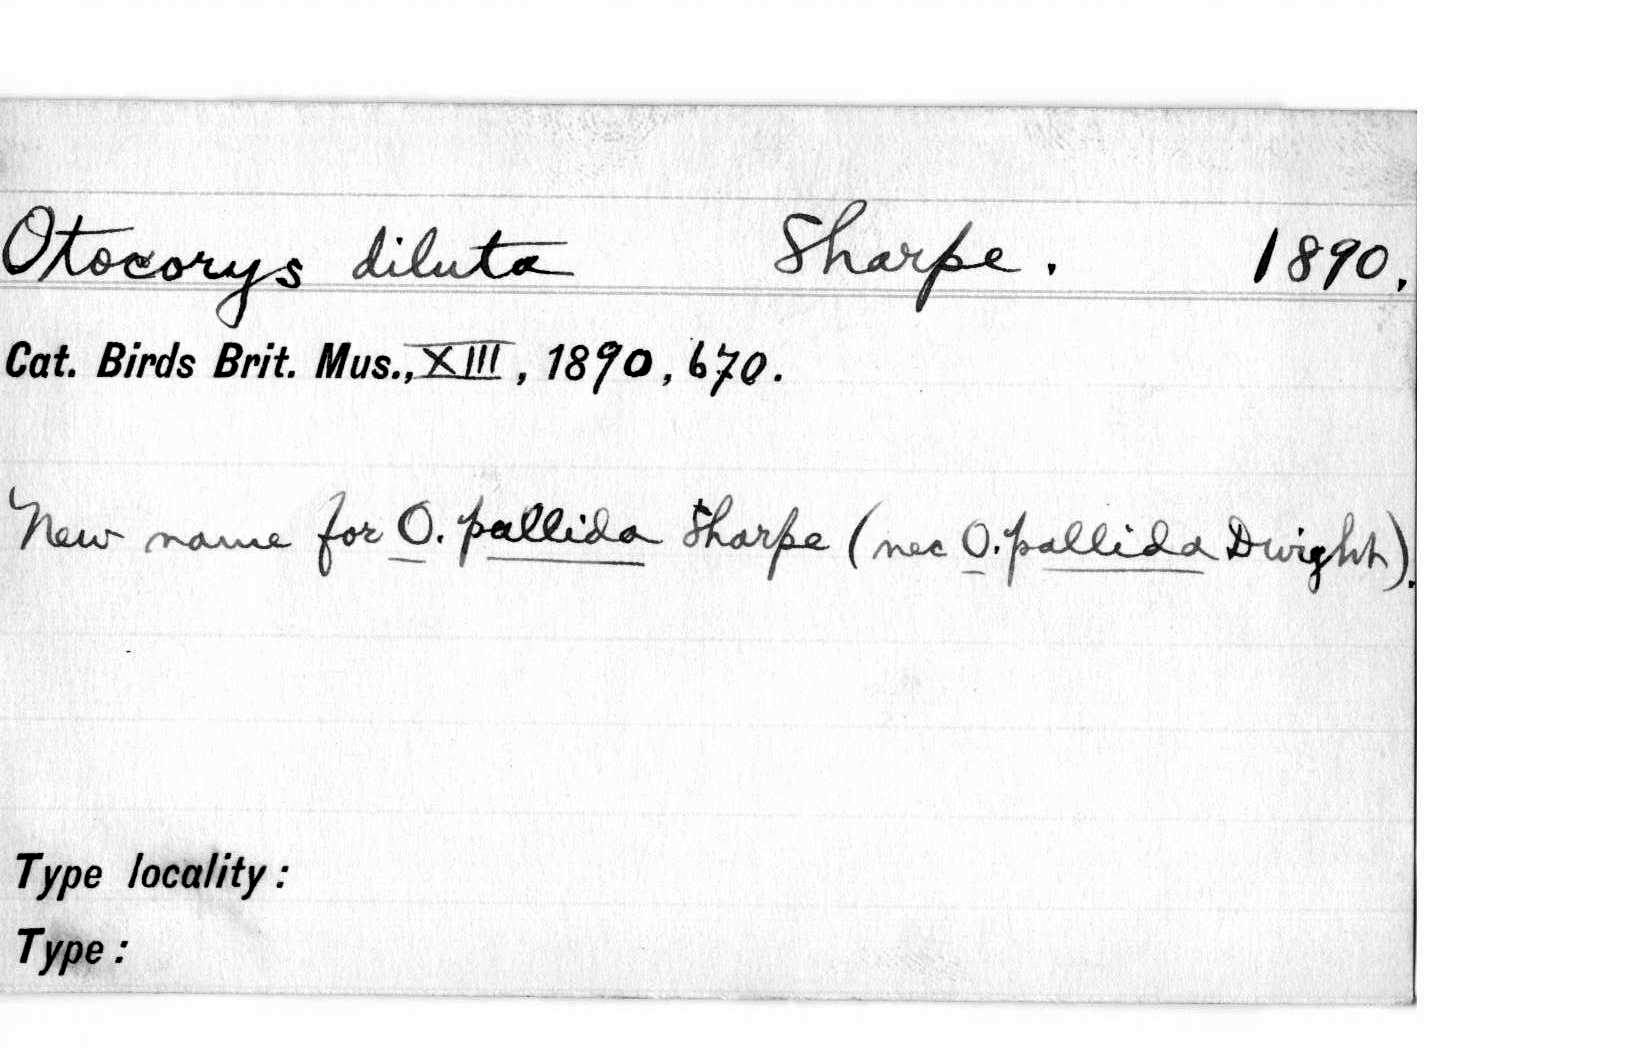 Otocorys diluta Sharpe. 1890.
Cat. Birds Brit. Mus., XIII, 1890, 670.
New name for O. pallida Sharpe (nec O. pallida Dwight).
Type locality:
Type: